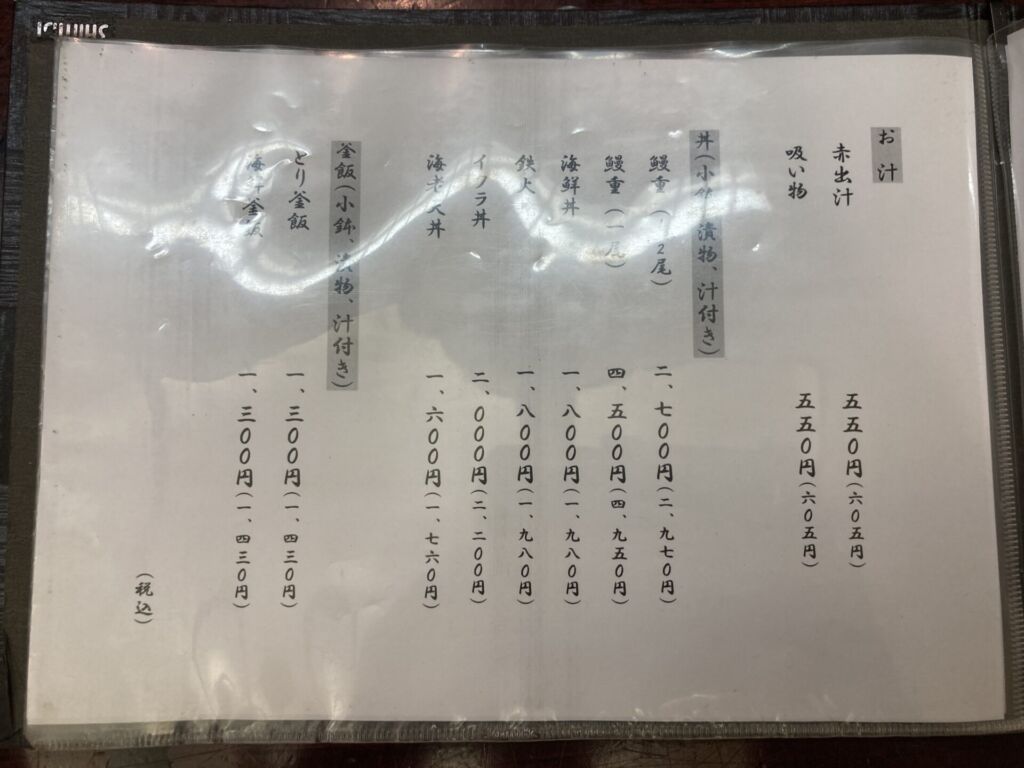 お汁
赤出汁 五五〇円(六〇五円)
吸い物 五五〇円(六〇五円)
丼(小鉢、漬物、汁付き)
鰻重(1/2尾) 二、七〇〇円(二、九七〇円)
鰻重(一尾) 四、五〇〇円(四、九五〇円)
海鮮丼 一、八〇〇円(一、九八〇円)
鉄火 一、八〇〇円(一、九八〇円)
イクラ丼 二、〇〇〇円(二、二〇〇円)
海老天丼 一、六〇〇円(一、七六〇円)
釜飯(小鉢、漬物、汁付き)
とり釜飯 一、三〇〇円(一、四三〇円)
海鮮釜飯 一、三〇〇円(一、四三〇円)
(税込)